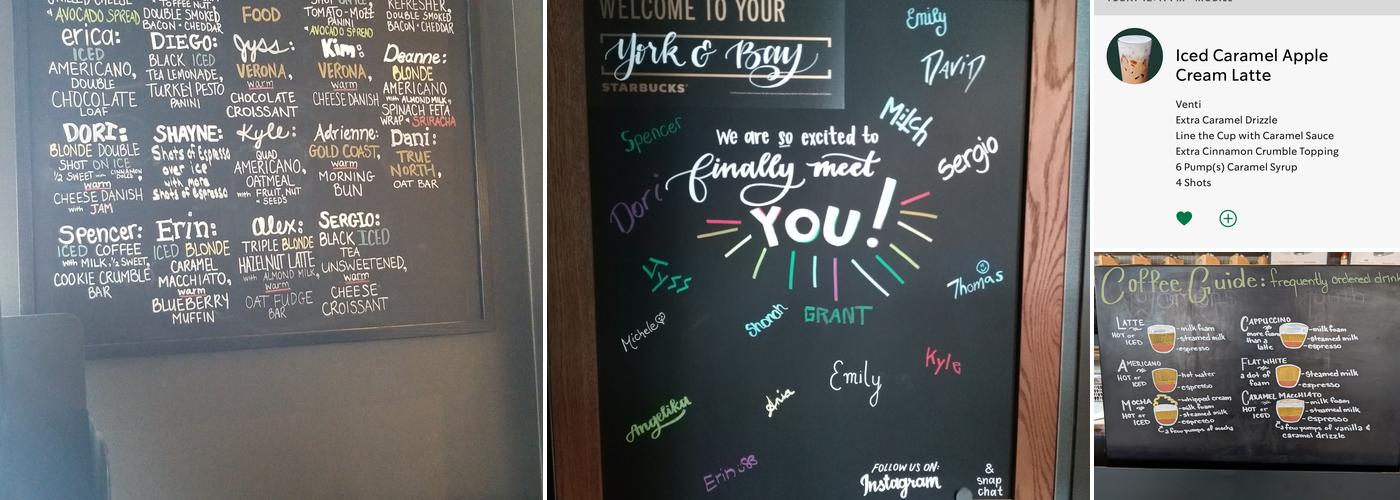 AVOCADO SPREAD
DOUBLE SMOKED
BACON + CHEDDAR
FOOD
TOMATO + Mozz
PANINI
+ AVOCADO SPREAD
REFRESHER,
DOUBLE SMOKED
BACON + CHEDDAR
erica:
ICED
AMERICANO,
DOUBLE
CHOCOLATE
LOAF
DIEGO:
BLACK ICED
TEA LEMONADE,
TURKEY PESTO
PANINI
Jyss:
VERONA,
warm
CHOCOLATE
CROISSANT
Kim:
VERONA,
warm
CHEESE DANISH
Deanne:
BLONDE
AMERICANO
with ALMOND MILK,
SPINACH FETA
WRAP + SRIRACHA
DORI:
BLONDE DOUBLE
SHOT ON ICE
1/2 SWEET with CINNAMON DOLCE,
warm
CHEESE DANISH
with JAM
SHAYNE:
Shots of Espresso
over ice
with more
Shots of Espresso
Kyle:
QUAD
AMERICANO,
OATMEAL
with FRUIT, NUT
+ SEEDS
Adrienne:
GOLD COAST,
warm
MORNING
BUN
Dani:
TRUE
NORTH,
OAT BAR
Spencer:
ICED COFFEE
with MILK, 1/2 SWEET,
COOKIE CRUMBLE
BAR
Erin:
ICED BLONDE
CARAMEL
MACCHIATO,
warm
BLUEBERRY
MUFFIN
alex:
TRIPLE BLONDE
HAZELNUT LATTE
with ALMOND MILK,
warm
OAT FUDGE
BAR
SERGIO:
BLACK ICED
TEA
UNSWEETENED,
warm
CHEESE
CROISSANT
WELCOME TO YOUR
York & Bay
STARBUCKS
Emily
DAVID
Mitch
Sergio
Spencer
We are so excited to
finally meet
YOU!
Dori
Jyss
Thomas
Michele
Shonah
GRANT
Kyle
Emily
Aria
Angelika
Erin
FOLLOW US ON:
Instagram
&
snap
chat
Iced Caramel Apple
Cream Latte
Venti
Extra Caramel Drizzle
Line the Cup with Caramel Sauce
Extra Cinnamon Crumble Topping
6 Pump(s) Caramel Syrup
4 Shots
Coffee Guide: frequently ordered drin
LATTE
HOT or
ICED
-milk foam
-steamed milk
-espresso
CAPPUCCINO
more foam
than a
latte
-milk foam
-steamed milk
-espresso
AMERICANO
HOT or
ICED
-hot water
-espresso
FLAT WHITE
a dot of
foam
-steamed milk
-espresso
MOCHA
HOT or
ICED
-whipped cream
-milk foam
-steamed milk
-espresso
a few pumps of mocha
CARAMEL MACCHIATO
HOT or
ICED
-milk foam
-steamed milk
-espresso
a few pumps of vanilla &
caramel drizzle